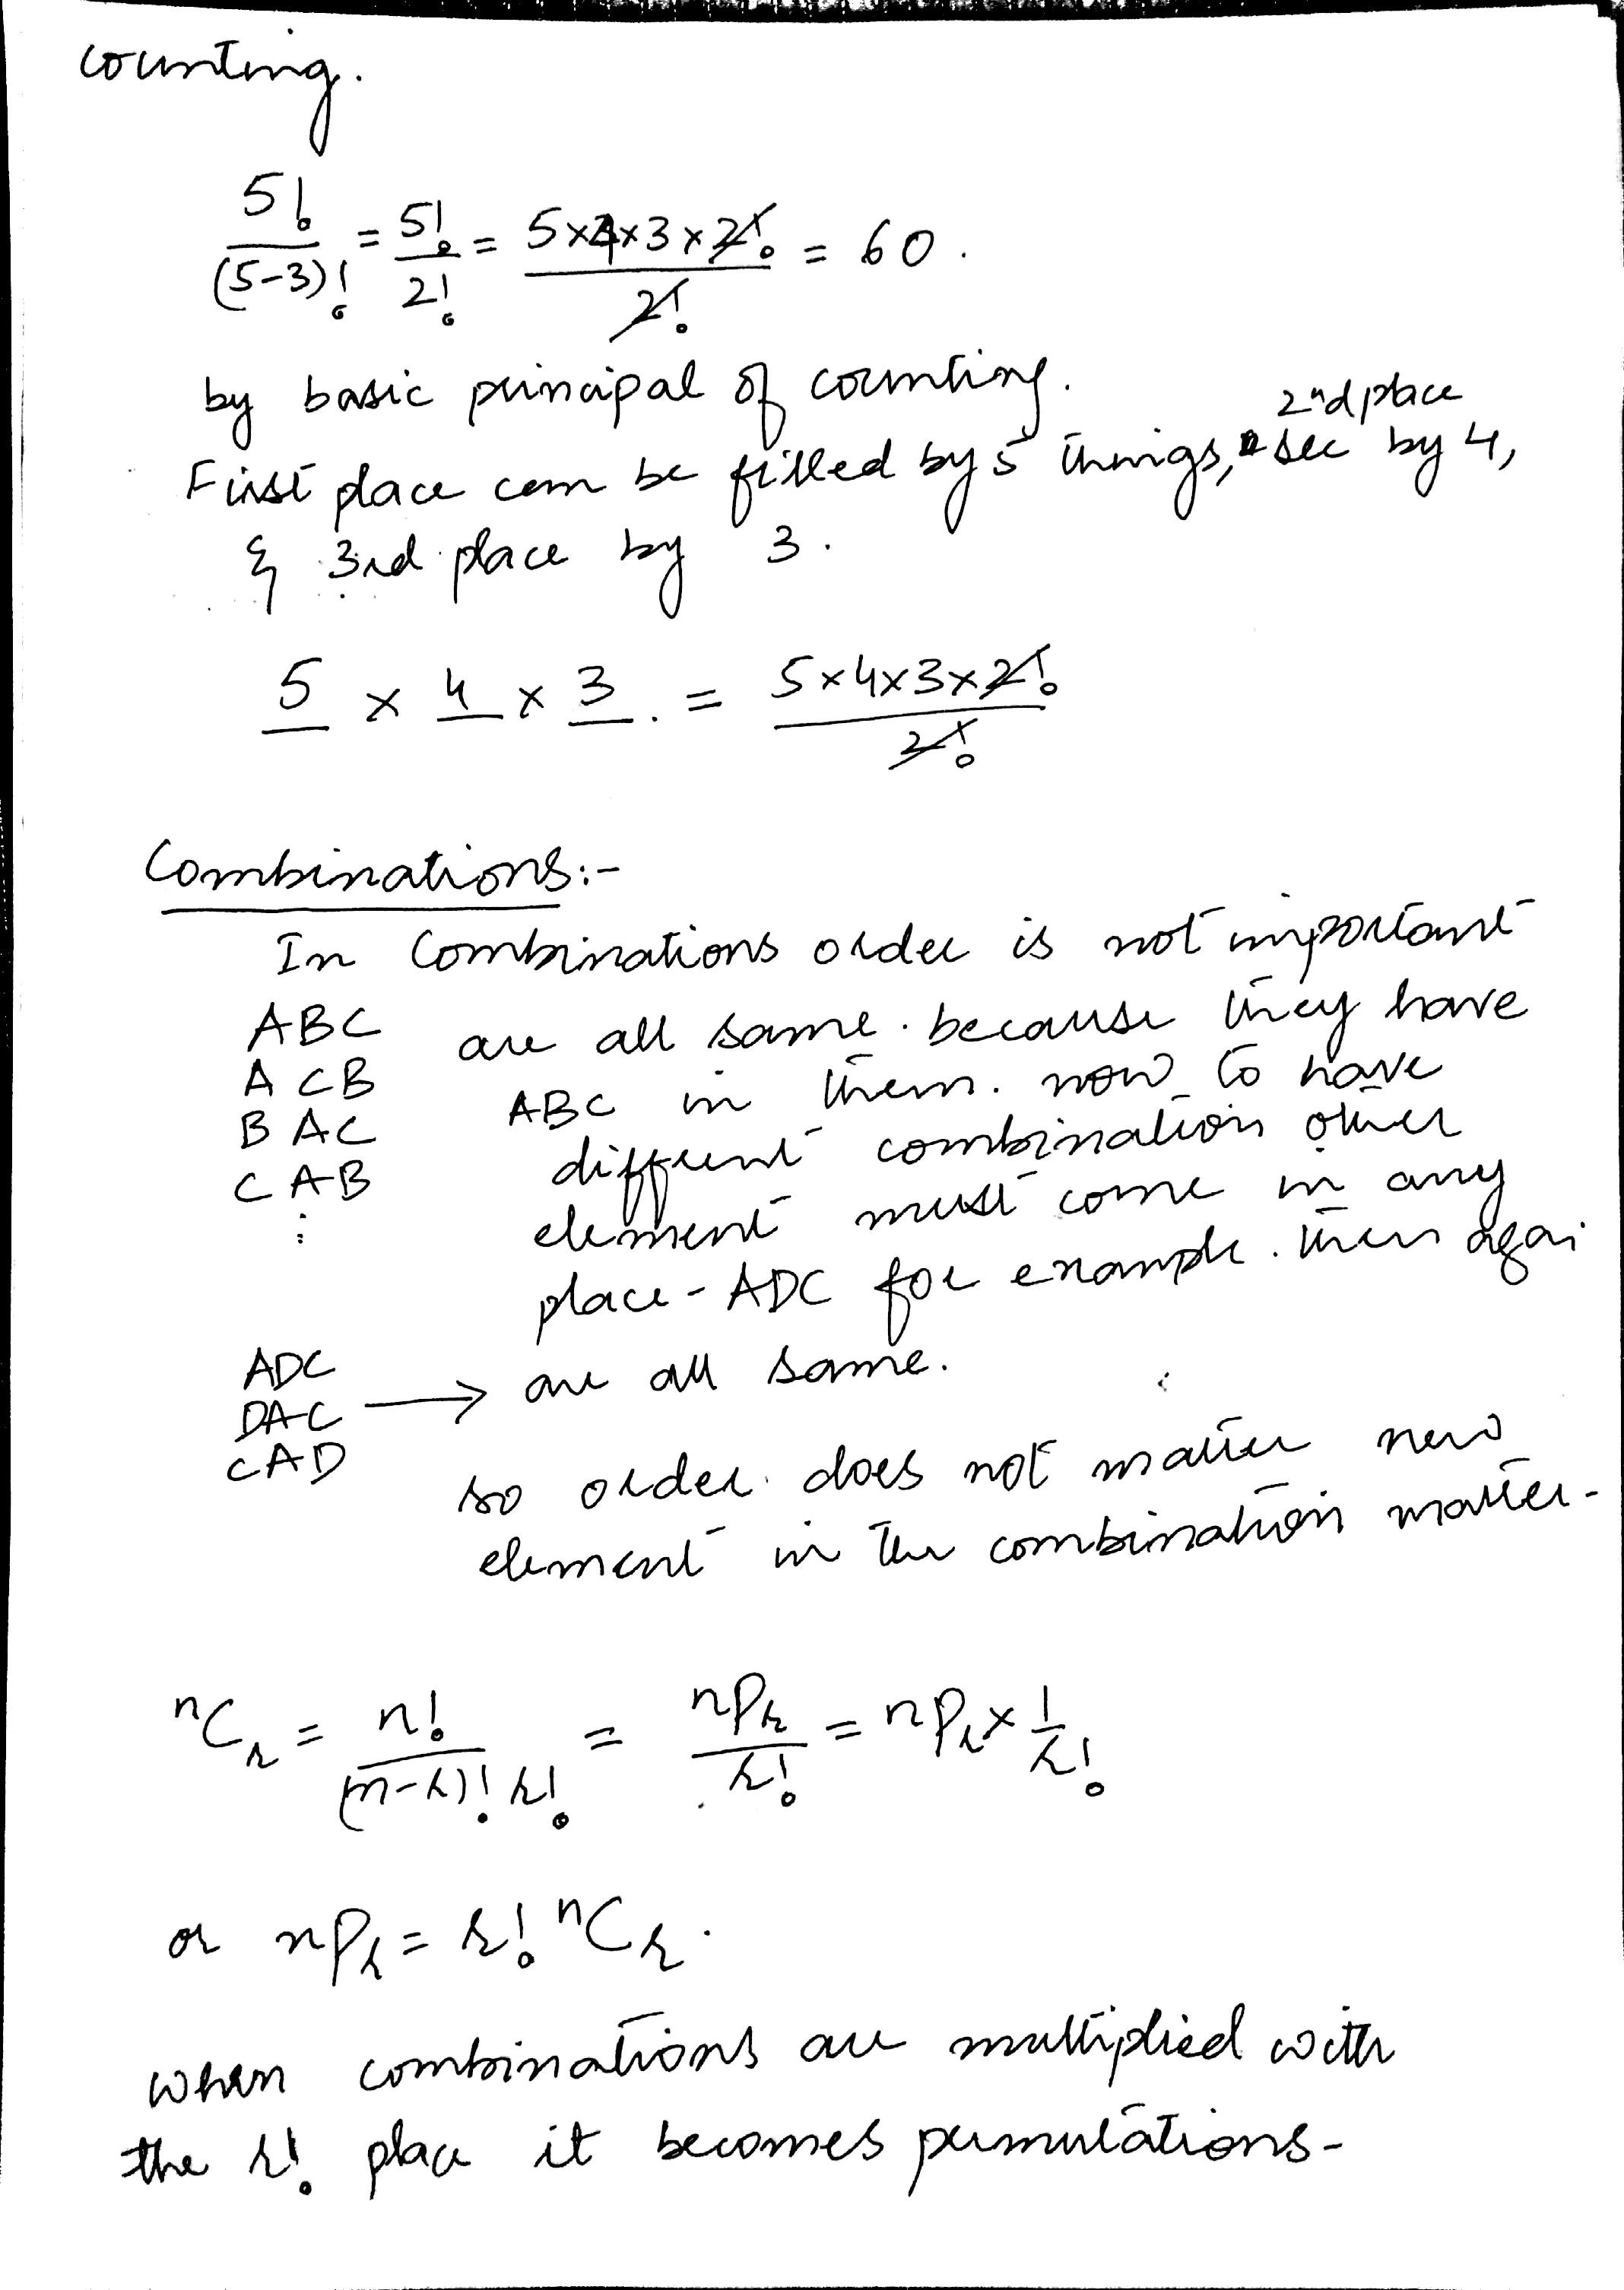 counting.
5! / (5-3)! = 5! / 2! = 5×4×3×2! / 2! = 60.
by basic principal of counting.
2nd place
First place can be filled by 5 things, sec by 4,
& 3rd place by 3.
5 × 4 × 3. = 5×4×3×2! / 2!
Combinations:-
In Combinations order is not important
ABC are all same. because they have
ACB ABC in them. now to have
BAC different combination other
CAB element must come in any
⋮ place - ADC for example. then agai
ADC
DAC → are all same.
CAD
so order does not matter new
element in the combination matter-
nCr = n! / (n-r)! r! = nPr / r! = nPr × 1 / r!
or nPr = r! nCr.
when combinations are multiplied with
the r! place it becomes permutations-